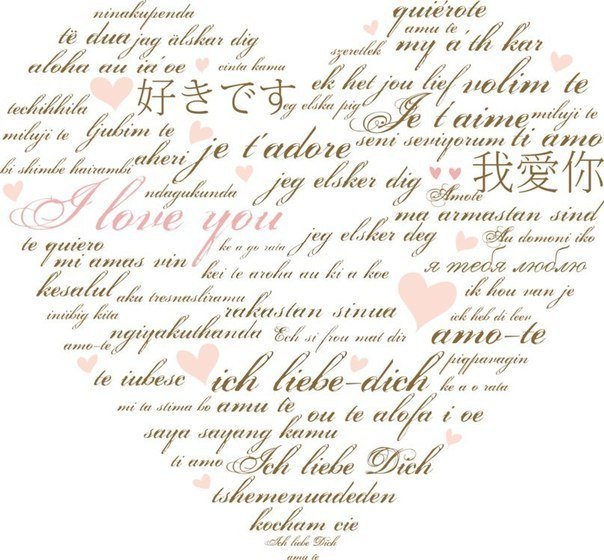 ninakupenda quiérote
të dua jag älskar dig amu te
szeretlek my a'th kar
aloha au ia'oe cinta kamu
ek het jou lief volim te
techihhila 好きです eg elska þig Je t'aime miluji te
miluji te ljubim te seni seviyorum ti amo
aheri je t'adore
bi shimbe hairambi jeg elsker dig 我愛你
ndagukunda Amote
I love you ma armastan sind
te quiero ke a go rata jeg elsker deg Au domoni iko
mi amas vin kei te aroha au ki a koe я тебя люблю
kesalul aku tresnasliramu ik hou van je
iniibig kita rakastan sinua ick heb di leev
ngiyakuthanda Ech si frou mat dir amo-te
amo-te piqpavagin
te iubesc ich liebe-dich ke a o rata
mi ta stima bo amu tè ou te alofa i oe
saya sayang kamu
ti amo Ich liebe Dich
tshemenuadeden
kocham cie
Ich liebe Dich
amu te